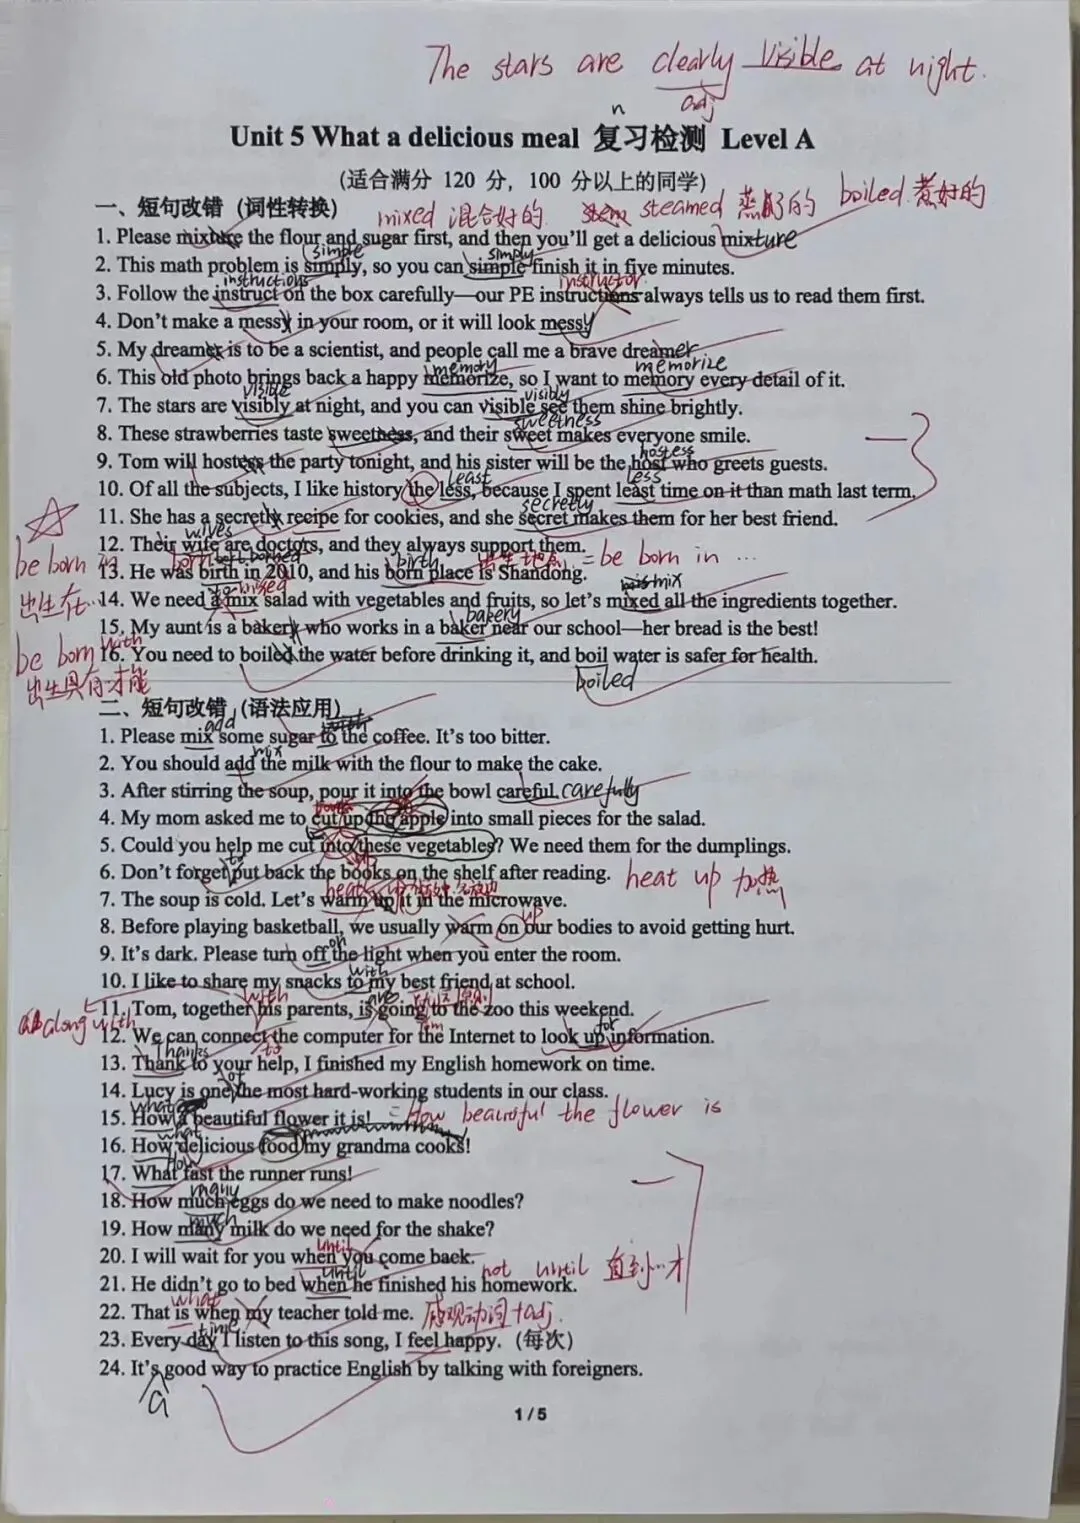 The stars are clearly visible at night.
adj
n
Unit 5 What a delicious meal 复习检测 Level A
(适合满分 120 分，100 分以上的同学)
一、短句改错（词性转换）
mixed 混合好的 steamed 蒸好的 boiled 煮好的
1. Please mixture the flour and sugar first, and then you'll get a delicious mixture
simple simply
2. This math problem is simply, so you can simple finish it in five minutes.
instructions instructor
3. Follow the instruct on the box carefully—our PE instructions always tells us to read them first.
4. Don't make a messy in your room, or it will look messy
5. My dreamer is to be a scientist, and people call me a brave dreamer
memory memorize
6. This old photo brings back a happy memorize, so I want to memory every detail of it.
visible visibly
7. The stars are visibly at night, and you can visible see them shine brightly.
sweetness
8. These strawberries taste sweetness, and their sweet makes everyone smile.
hostess
9. Tom will hostess the party tonight, and his sister will be the host who greets guests.
least less
10. Of all the subjects, I like history the less, because I spent least time on it than math last term.
secretly
11. She has a secretly recipe for cookies, and she secret makes them for her best friend.
wives
12. Their wife are doctors, and they always support them.
be born in
出生在...
born birth 出生地点 = be born in ...
13. He was birth in 2010, and his born place is Shandong.
mixed mix
14. We need a mix salad with vegetables and fruits, so let's mixed all the ingredients together.
bakery
15. My aunt is a bakery who works in a baker near our school—her bread is the best!
be born with
出生具有才能
16. You need to boiled the water before drinking it, and boil water is safer for health.
boiled
二、短句改错（语法应用）
add
1. Please mix some sugar to the coffee. It's too bitter.
mix
2. You should add the milk with the flour to make the cake.
3. After stirring the soup, pour it into the bowl careful. carefully
4. My mom asked me to cut up the apple into small pieces for the salad.
5. Could you help me cut into these vegetables? We need them for the dumplings.
to
6. Don't forget put back the books on the shelf after reading. heat up 加热
heat up
7. The soup is cold. Let's warm up it in the microwave.
up
8. Before playing basketball, we usually warm on our bodies to avoid getting hurt.
on
9. It's dark. Please turn off the light when you enter the room.
with
10. I like to share my snacks to my best friend at school.
with are 就远原则
11. Tom, together his parents, is going to the zoo this weekend.
along with
for
12. We can connect the computer for the Internet to look up information.
Thanks to
13. Thank to your help, I finished my English homework on time.
of
14. Lucy is one the most hard-working students in our class.
what
15. How a beautiful flower it is! = How beautiful the flower is
what
16. How delicious food my grandma cooks!
How
17. What fast the runner runs!
many
18. How much eggs do we need to make noodles?
much
19. How many milk do we need for the shake?
until
20. I will wait for you when you come back.
until not until 直到...才
21. He didn't go to bed when he finished his homework.
what
22. That is when my teacher told me. 感观动词+adj.
time
23. Every day I listen to this song, I feel happy.（每次）
24. It's good way to practice English by talking with foreigners.
a
1 / 5